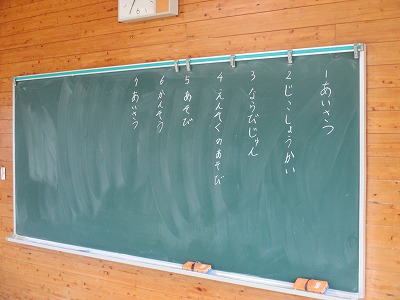 1 あいさつ
2 じこしょうかい
3 ならびじゅん
4 えんそくのあそび
5 あそび
6 かんそう
7 あいさつ